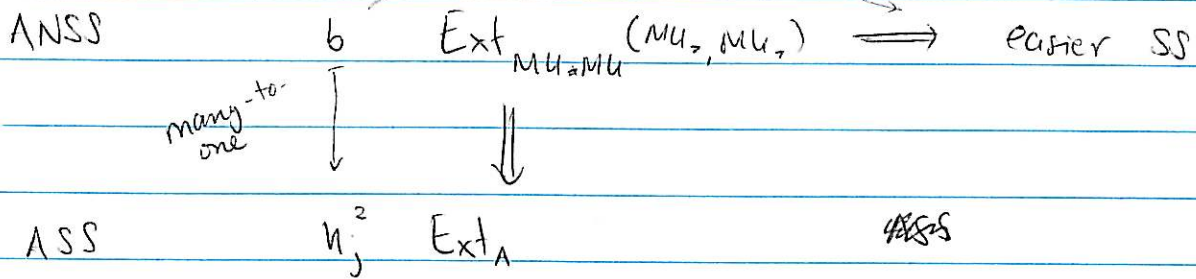 ANSS b Ext_{MU_*MU}(MU_*, MU_*) ⟹ easier SS
many-to-
one
ASS h_j^2 Ext_A